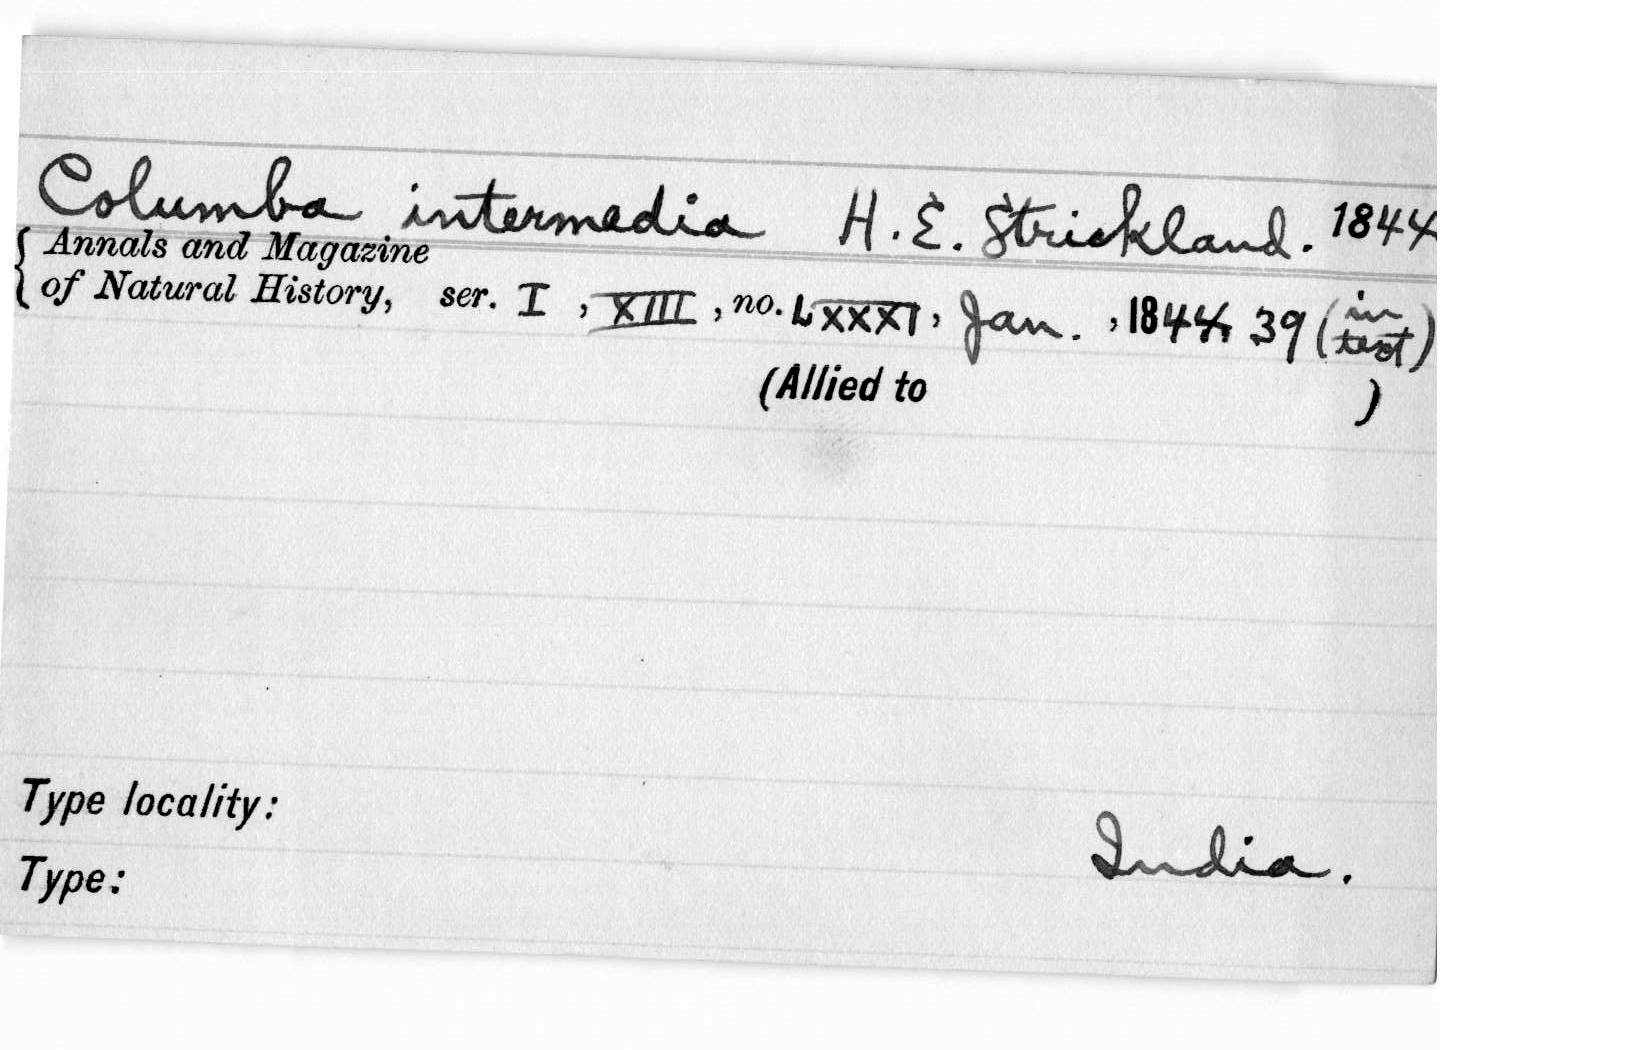 Columba intermedia H. E. Strickland. 1844
Annals and Magazine
of Natural History, ser. I , XIII , no. LXXXI, Jan. , 1844, 39 (in text)
(Allied to )
Type locality:
India.
Type: